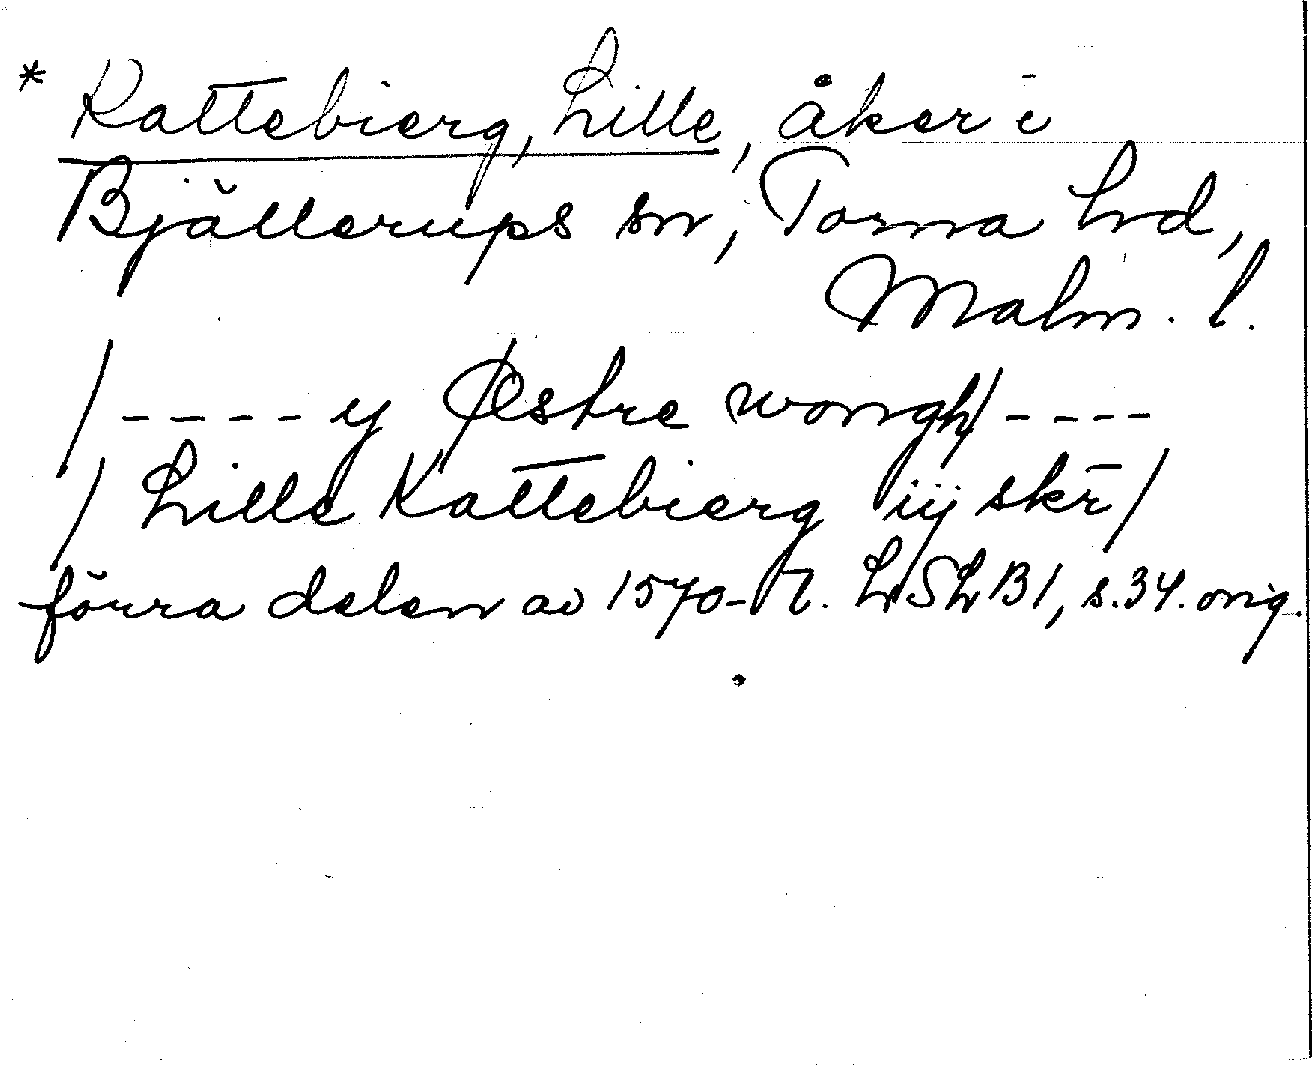 * Kattebierg, Lille, åker i
Bjällerups sn, Torna hd,
Malm. l.
/ - - - - y Østre wongh / - - - -
/ Lille Kattebierg iij skr̄ /
förra delen av 1570-t. LSLB1, s.34. orig.